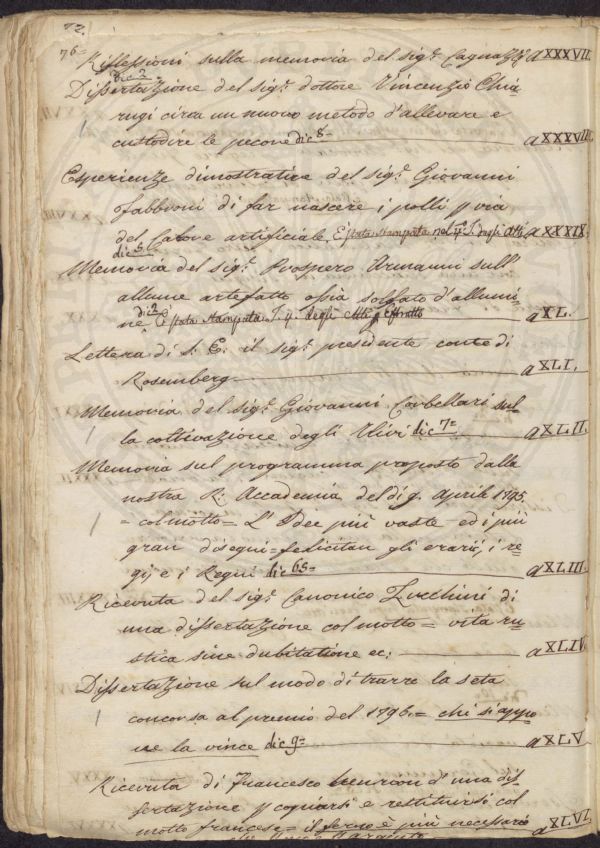 72.
76=
Riflessioni sulla memoria del sig.r Cagnazzi a XXXVII.
dic 2=
Dissertazione del sig.r dottore Vincenzio Chia
rugi circa un nuovo metodo d'allevare e
custodire le pecore dic 8= a XXXVIII.
Esperienze dimostrative del sig.r Giovanni
Fabbroni di far nascere i polli p via
del Calore artificiale È stata stampata nel degli Atti a XXXIX.
dic 5
Memoria del sig.r Prospero Armanni sull'
allume artefatto ossia solfato d'allumi=
dic 2
ne È stata stampata T. degli Atti a XL.
Lettera di S. E. il sig.r presidente conte di
Rosemberg a XLI.
Memoria del sig.r Giovanni Corbellari sul
la coltivazione degli Ulivi dic 7= a XLII.
Memoria sul programma proposto dalla
nostra R. Accademia del dì 9. Aprile 1795.
= col motto = L' Idee più vaste ed i più
gran disegni = felicitan gli erarii, i re
gi, e i Regni dic 65= a XLIII.
Ricevuta del sig.r Canonico Zucchini di
una dissertazione col motto = vita ru
stica sine dubitatione ec: a XLIV.
Dissertazione sul modo di trarre la seta
concorsa al premio del 1796.= chi si appo
ne la vince dic 9= a XLV.
Ricevuta di Francesco d'una dis
sertazione p e restituirsi col
motto francese = il è più necessario a XLVI.